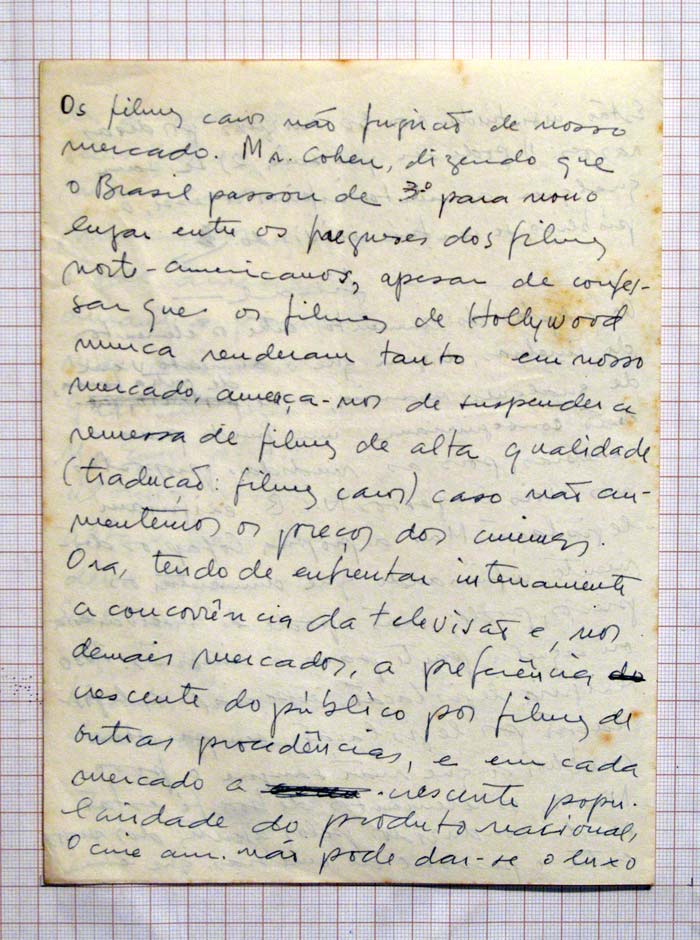 Os filmes caros não fugirão de nosso
mercado. Mr. Cohen, dizendo que
o Brasil passou de 3º para nono
lugar entre os fregueses dos filmes
norte-americanos, apesar de confes-
sar que os filmes de Hollywood
nunca renderam tanto em nosso
mercado, ameaça-nos de suspender a
remessa de filmes de alta qualidade
(tradução: filmes caros) caso não au-
mentemos os preços dos cinemas.
Ora, tendo de enfrentar internamente
a concorrência da televisão e, nos
demais mercados, a preferência do
crescente do público por filmes de
outras procedências, e em cada
mercado a crescente popu-
laridade do produto nacional,
O cine am. não pode dar-se o luxo